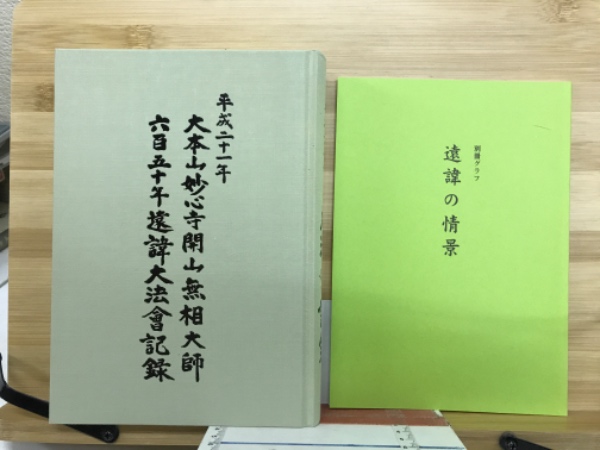 平成二十一年
大本山妙心寺開山無相大師
六百五十年遠諱大法會記録
別冊グラフ
遠諱の情景